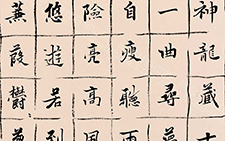 神龍藏
一曲尋
自瘦聽雨
險亮高
悠遊若到
葭鬱